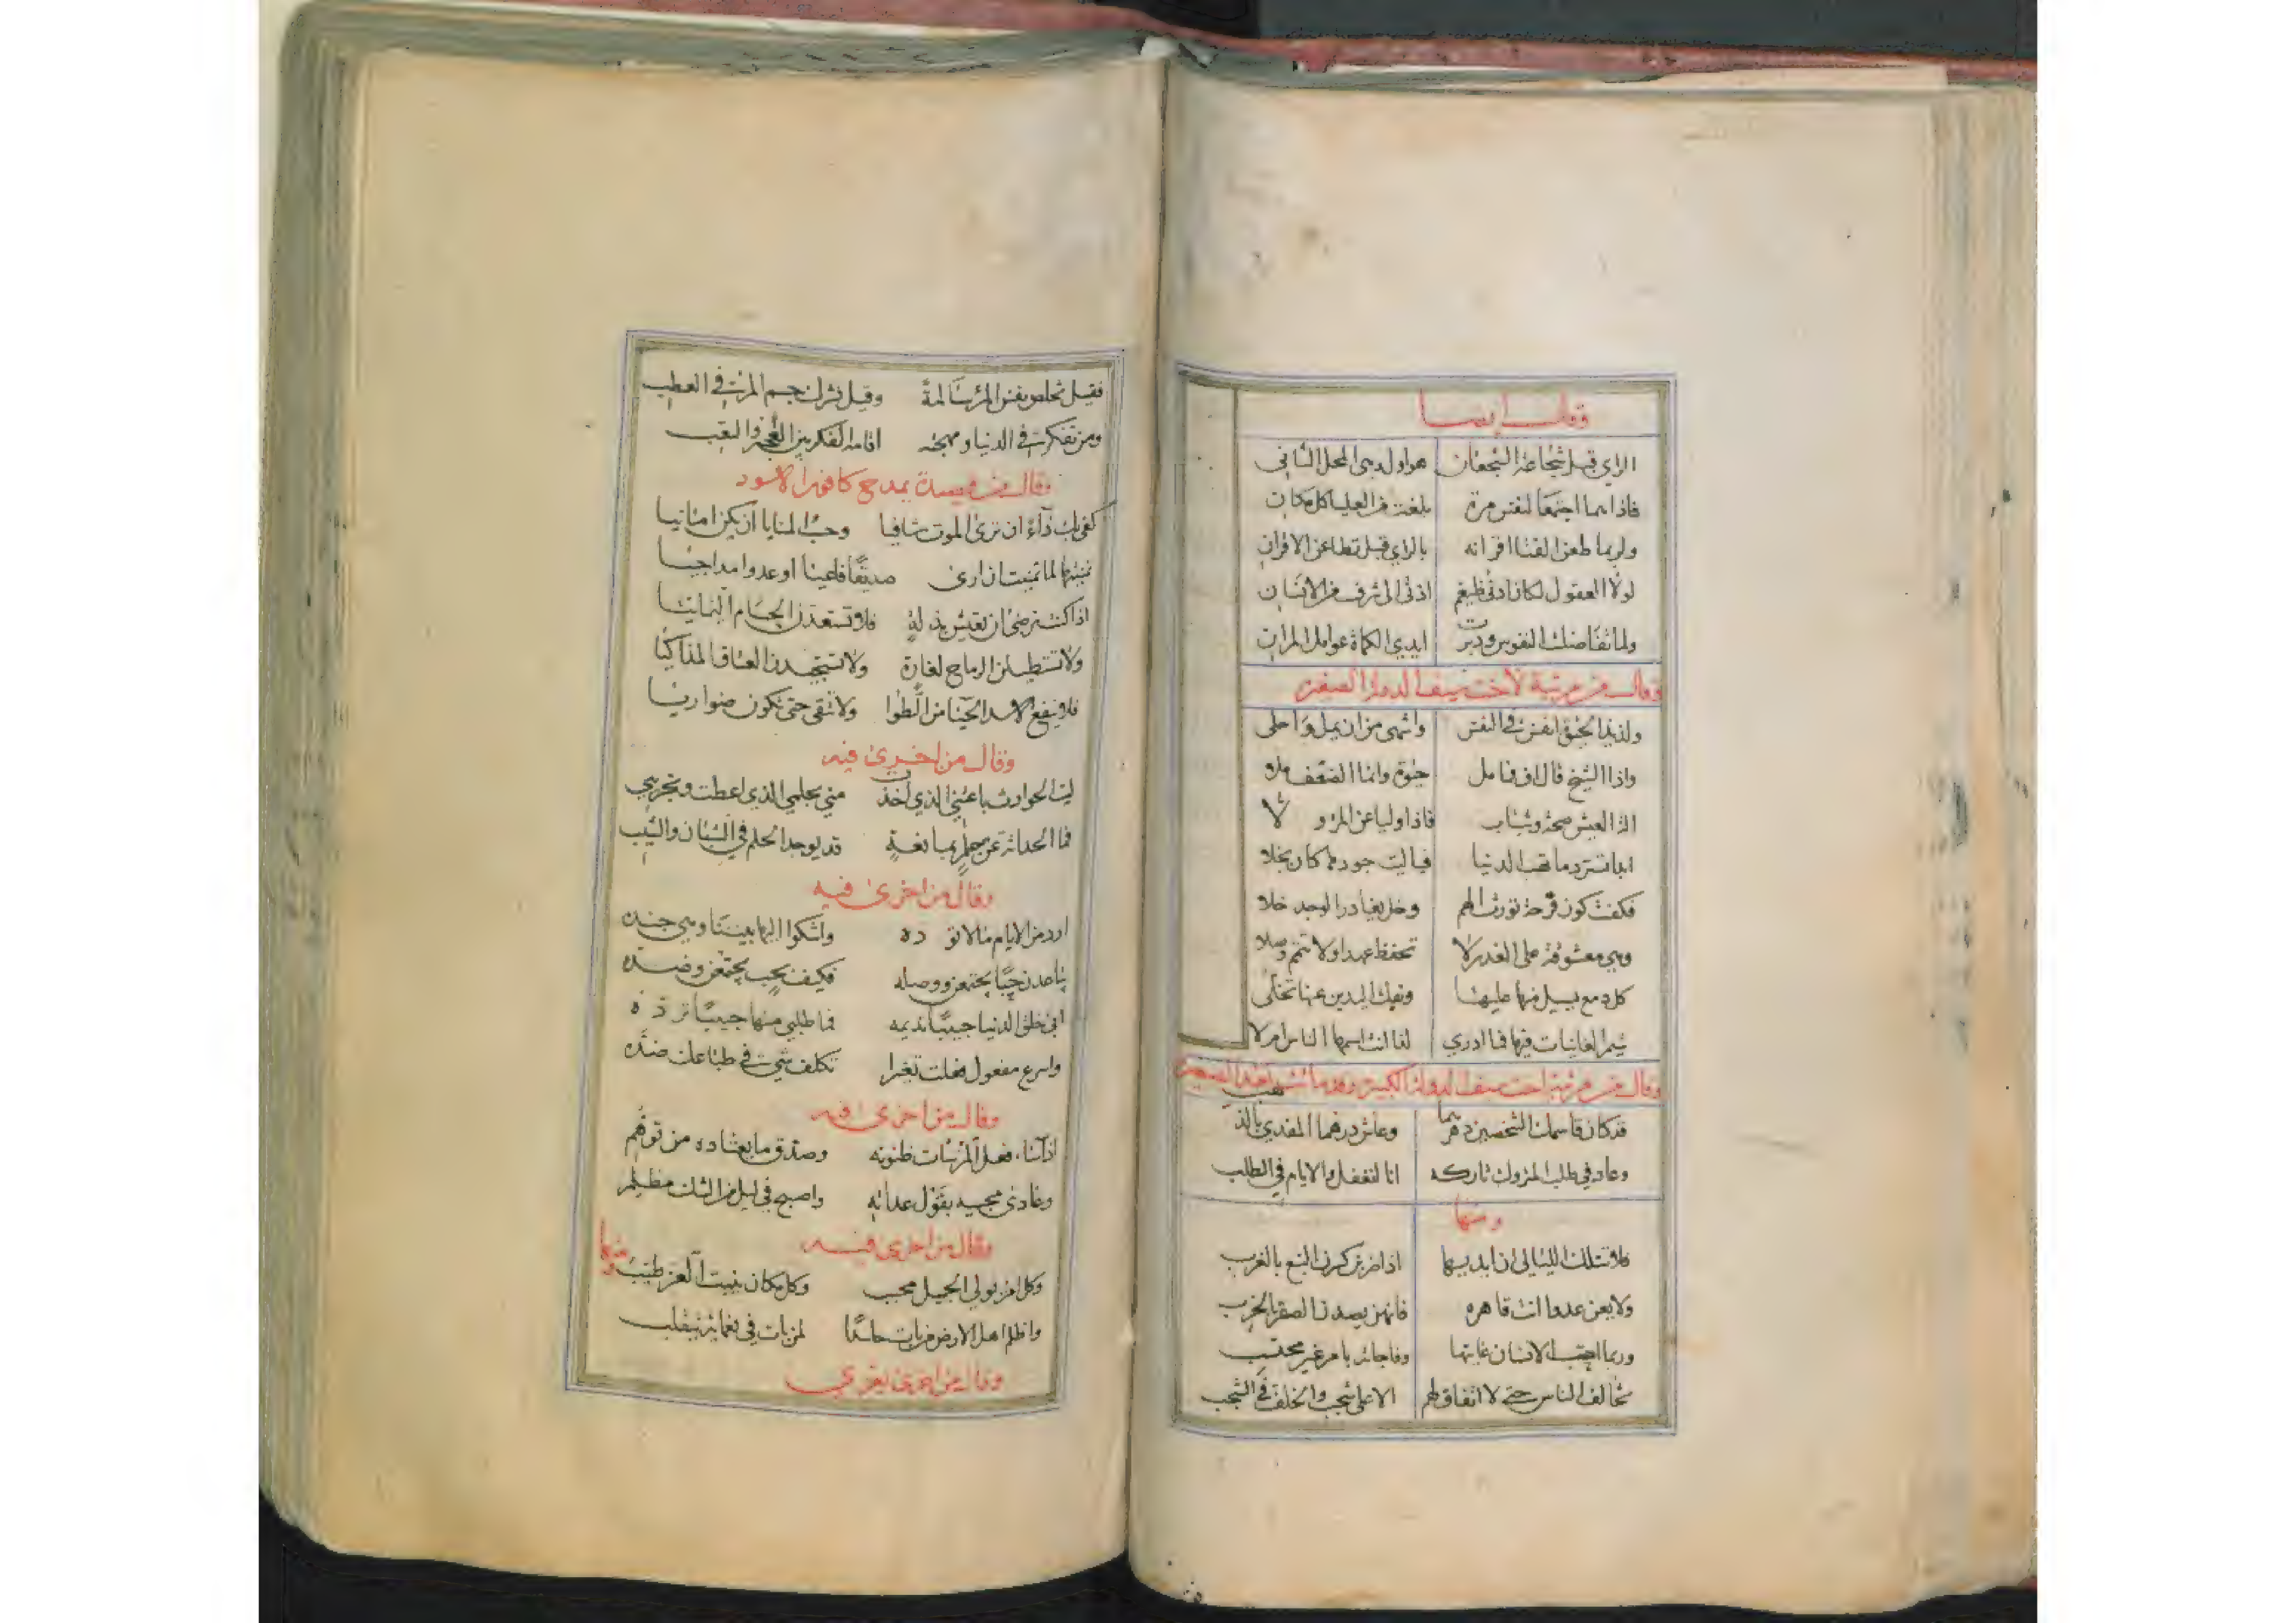 وقال ايضا
الراي قبل شجاعة الشجعان هو اول وهي المحل الثاني
فاذا هما اجتمعا لنفس مرة بلغت من العلياء كل مكان
ولربما طعن الفتى اقرانه بالراي قبل تطاعن الاقران
لولا العقول لكان ادنى ضيغم ادنى الى شرف من الانسان
ولما تفاضلت النفوس ودبرت ايدي الكماة عوامل المران
وقال من مرثية لاخت سيف الدولة الصغرى
ولذيذ الحيوة انفس في النفس واشهى من ان يمل واحلى
واذا الشيخ قال اف فما مل حيوة وانما الضعف ملا
الة العيش صحة وشباب فاذا وليا عن المرء ولا
ابدا تسترد ما تهب الدنيا فيا ليت جودها كان بخلا
فكفت كون فرحة تورث الهم وخل يغادر الوجد خلا
وهي معشوقة على الغدر لا تحفظ عهدا ولا تتم وصلا
كل دمع يسيل منها عليها وبفك اليدين عنها تخلى
شيم الغانيات فيها فما ادري لذا انث اسمها الناس ام لا
وقال من مرثية اخت سيف الدولة الكبيرة وقدماتت اختها الصغيرة
قد كان قاسمك الشخصين دهرهما وعاش درهما المفدي بالذهب
وعاد في طلب المتروك تاركه انا لنغفل والايام في الطلب
ومنها
فلا تنلك الليالي ان ايديها اذا ضربن كسرن النبع بالغرب
ولا يعن عدوا انت قاهره فانهن يصدن الصقر بالخرب
وربما احتسب الانسان غايتها وفاجاته بامر غير محتسب
تخالف الناس حتى لا اتفاق لهم الا على شجب والخلف في الشجب
فقيل تخلص نفس المرء سالمة وقيل تشرك جسم المرء في العطب
ومن تفكر في الدنيا ومهجته اقامه الفكر بين العجز والتعب
وقال من قصيدة يمدح كافور الاسود
كفى بك داء ان ترى الموت شافيا وحب المنايا ان يكن امانيا
تمنيتها لما تمنيت ان ارى صديقا فاعيا او عدوا مداجيا
اذا كنت ترضى ان تعيش بذلة فلا تستعدن الحسام اليمانيا
ولا تستطيلن الرماح لغارة ولا تستجيدن العتاق المذاكيا
فلا ينفع الاسد الحيا من الطوا ولا تتقى حتى تكون ضواريا
وقال من اخرى فيه
ليت الحوادث باعتني الذي اخذت مني بحلمي الذي اعطت وتجريبي
فما الحداثة عن حلم بمانعة قد يوجد الحلم في الشبان والشيب
وقال من اخرى فيه
اود من الايام ما لا توده واشكوا اليها بيننا وهي جنده
يباعدن حبا يجتمعن ووصله فكيف بحب يجتمعن وضده
ابى خلق الدنيا حبيبا تديمه فما طلبي منها حبيبا ترده
واسرع مفعول فعلت تغيرا تكلف شيء في طباعك ضده
وقال من اخرى فيه
اذا ساء فعل المرء ساءت ظنونه وصدق ما يعتاده من توهم
وعادى محبيه بقول عداته واصبح في ليل من الشك مظلم
وقال من اخرى فيه
وكل امرء يولي الجميل محبب وكل مكان ينبت العز طيب ومنها
واظلم اهل الارض من بات حاسدا لمن بات في نعمائه يتقلب
وقال من اخرى يعزي